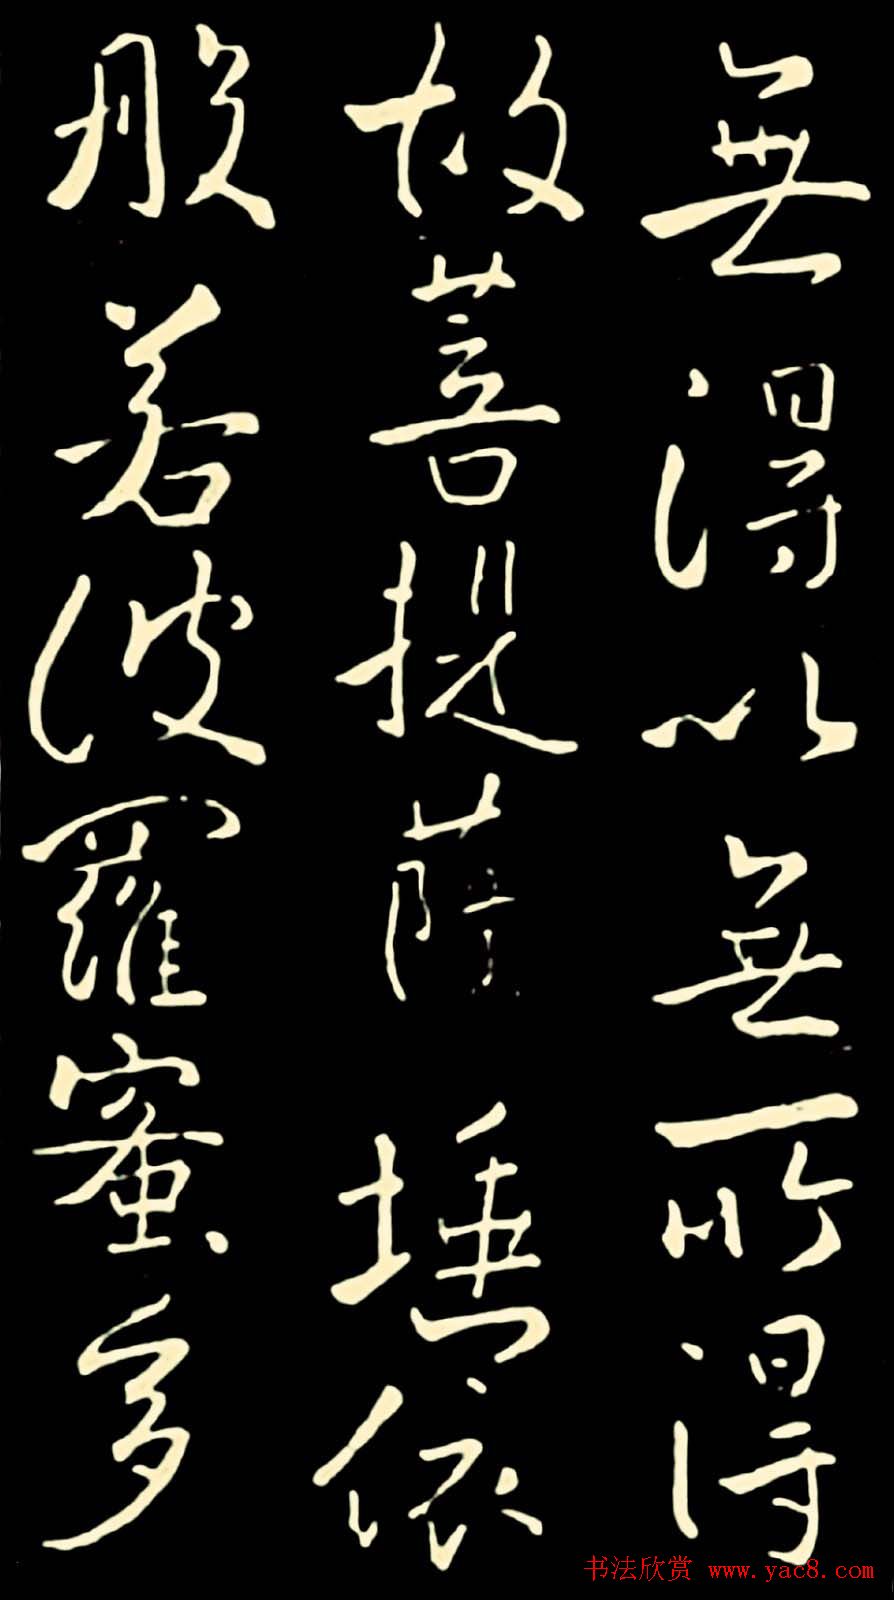 無得以無所得
故菩提薩埵依
般若波羅蜜多
书法欣赏 www.yac8.com